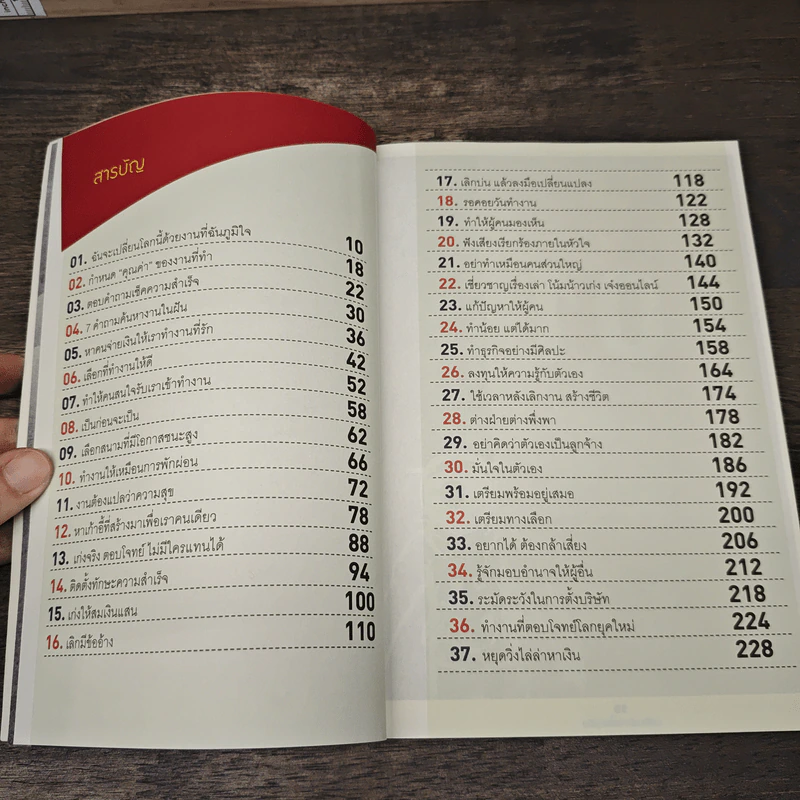 สารบัญ
01. ฉันจะเปลี่ยนโลกนี้ด้วยงานที่ฉันภูมิใจ 10
02. กำหนด "คุณค่า" ของงานที่ทำ 18
03. ตอบคำถามเช็คความสำเร็จ 22
04. 7 คำถามค้นหางานในฝัน 30
05. หาคนจ่ายเงินให้เราทำงานที่รัก 36
06. เลือกที่ทำงานให้ดี 42
07. ทำให้คนสนใจรับเราเข้าทำงาน 52
08. เป็นก่อนจะเป็น 58
09. เลือกสนามที่มีโอกาสชนะสูง 62
10. ทำงานให้เหมือนการพักผ่อน 66
11. งานต้องแปลว่าความสุข 72
12. หาเก้าอี้ที่สร้างมาเพื่อเราคนเดียว 78
13. เก่งจริง ตอบโจทย์ ไม่มีใครแทนได้ 88
14. ติดตั้งทักษะความสำเร็จ 94
15. เก่งให้สมเงินแสน 100
16. เลิกมีข้ออ้าง 110
17. เลิกบ่น แล้วลงมือเปลี่ยนแปลง 118
18. รอคอยวันทำงาน 122
19. ทำให้ผู้คนมองเห็น 128
20. ฟังเสียงเรียกร้องภายในหัวใจ 132
21. อย่าทำเหมือนคนส่วนใหญ่ 140
22. เชี่ยวชาญเรื่องเล่า โน้มน้าวเก่ง เจ๋งออนไลน์ 144
23. แก้ปัญหาให้ผู้คน 150
24. ทำน้อย แต่ได้มาก 154
25. ทำธุรกิจอย่างมีศิลปะ 158
26. ลงทุนให้ความรู้กับตัวเอง 164
27. ใช้เวลาหลังเลิกงาน สร้างชีวิต 174
28. ต่างฝ่ายต่างพึ่งพา 178
29. อย่าคิดว่าตัวเองเป็นลูกจ้าง 182
30. มั่นใจในตัวเอง 186
31. เตรียมพร้อมอยู่เสมอ 192
32. เตรียมทางเลือก 200
33. อยากได้ ต้องกล้าเสี่ยง 206
34. รู้จักมอบอำนาจให้ผู้อื่น 212
35. ระมัดระวังในการตั้งบริษัท 218
36. ทำงานที่ตอบโจทย์โลกยุคใหม่ 224
37. หยุดวิ่งไล่ล่าหาเงิน 228